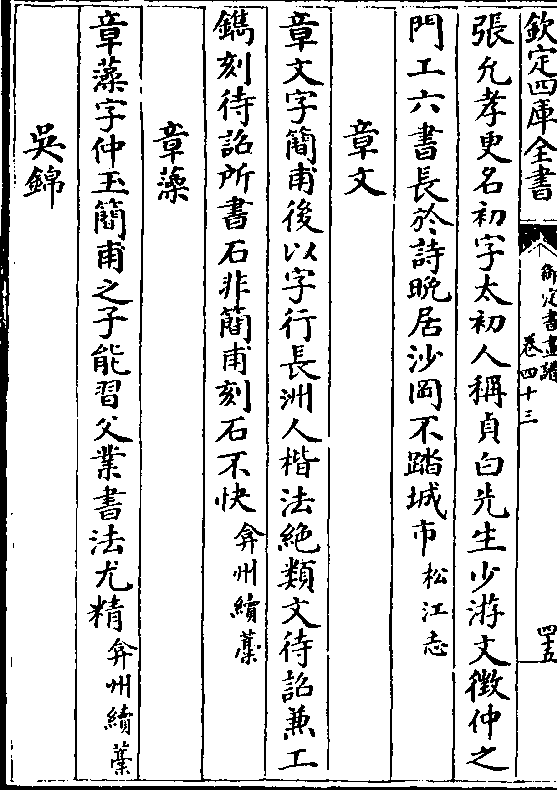 欽定四庫全書
御定書畫譜
卷四十三
四五
張允孝更名初字太初人稱貞白先生少游文徵仲之
門工六書長於詩晩居沙岡不踏城市松江志
章文
章文字簡甫後以字行長洲人楷法絶類文待詔兼工
鐫刻待詔所書石非簡甫刻石不快弇州續藁
章藻
章藻字仲玉簡甫之子能習父業書法尤精弇州續藁
吳錦